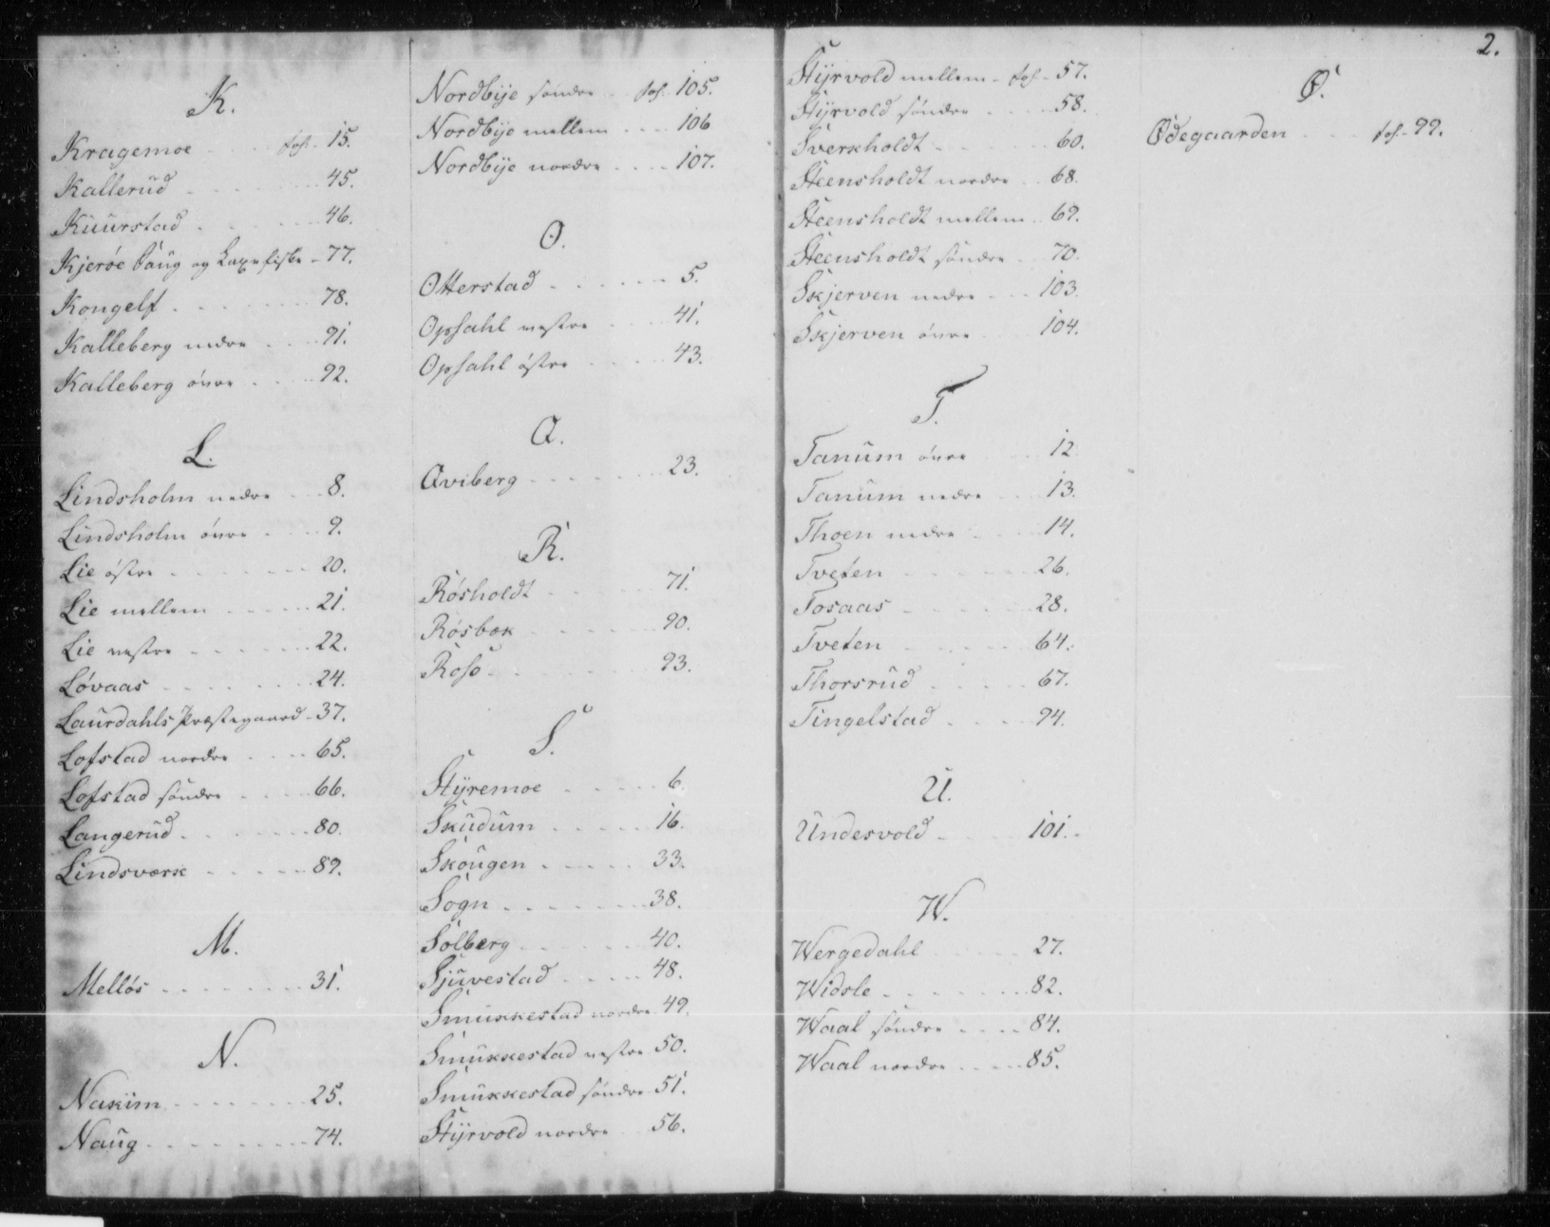 K.
Kragemoe fol. 15.
Kallerud 45.
Kuurstad 46.
Kjerøe Laug og Laxefiske 77.
Kongelf 78.
Kalleberg nedre 91.
Kalleberg övre 92.
L.
Lindsholm nedre 8.
Lindsholm övre 9.
Lie östre 20.
Lie mellem 21.
Lie vestre 22.
Lövaas 24.
Laurdahls Præstegaard 37.
Lofstad nordre 65.
Lofstad söndre 66.
Langerud 80.
Lindsværk 89.
M.
Mellös 31.
N.
Nakim 25.
Naug 74.
Nordbÿe söndre fol. 105.
Nordbÿe mellem 106
Nordbÿe nordre 107.
O.
Otterstad 5.
Opsahl vestre 41.
Opsahl östre 43.
Q.
Qviberg 23.
R.
Rösholdt 71.
Rösbæk 90.
Rosö 93.
S.
Stÿremoe 6.
Skudum 16.
Skougen 33.
Sogn 38.
Solberg 40.
Sjuvestad 48.
Smukkestad nordre 49.
Smukkestad vestre 50.
Smukkestad söndre 51.
Stÿrvold nordre 56.
2.
Stÿrvold mellem fol. 57.
Stÿrvold söndre 58.
Sverkholdt 60.
Steensholdt nordre 68.
Steensholdt mellem 69.
Steensholdt söndre 70.
Skjerven nedre 103.
Skjerven övre 104.
T.
Tanum övre 12.
Tanum nedre 13.
Thoen nedre 14.
Tveten 26.
Tosaas 28.
Tveten 64.
Thorsrud 67.
Tingelstad 94.
U.
Undesvold 101.
W.
Wergedahl 27.
Widsle 82.
Waal söndre 84.
Waal nordre 85.
Ø.
Ødegaarden fol. 99.